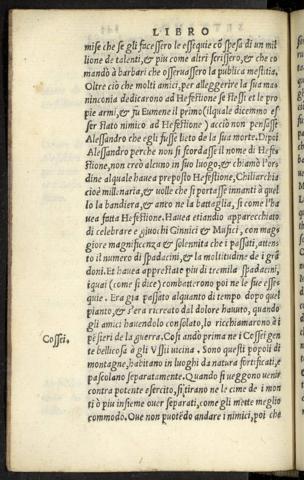 LIBRO
mise che se gli facessero le essequie cõ spesa di un mil
lione de talenti, & piu come altri scrissero, & che co
mandò à barbari che osseruassero la publica mestitia,
Oltre ciò che molti amici, per alleggerire la sua ma=
ninconia dedicarono ad Hefestione se stessi et le pro
pie armi, & fu Eumene il primo (ilquale dicemmo es
ser stato nimico ad Hefestione) acciò non pensasse
Alessandro che egli fusse lieto de la sua morte. Dipoi
Alessandro perche non si scordasse il nome di Hefe=
stione, non creò alcuno in suo luogo, & chiamò l'or=
dine alquale hauea preposto Hefestione, Chiliarchia
cioè millenaria, & uolle che si portasse innanti à quel
lo la bandiera, & anco ne la battaglia, si come l'ha
uea fatta Hefestione. Hauea etiandio apparecchiato
di celebrare e giuochi Ginnici & Musici, con mag=
giore magnificenza & solennita che i passati, atten=
to il numero di spadacini, & la moltitudine de i grã
doni. Et hauea apprestate piu di tremila spadacini,
i quai (come si dice) combatterono poi ne le sue esse=
quie. Era gia passato alquanto di tempo dopo quel
pianto, & s'era ricreato dal dolore hauuto, quando
gli amici hauendolo consolato, lo ricchiamarono à i
pẽsieri de la guerra. Cosi ando prima ne i Cossei gen
Cossei.
te bellicosa à gli Vssii uicina. Sono questi popoli di
montagne, habitano in luoghi da natura fortificati, e
pascolano separatamente. Quando si ueggono uenir
contra potente essercito, si tirano ne le cime de i mon
ti ò piu insieme ouer separati, come gli mette meglio
commodo. Oue non puotẽdo andare i nimici, poi che